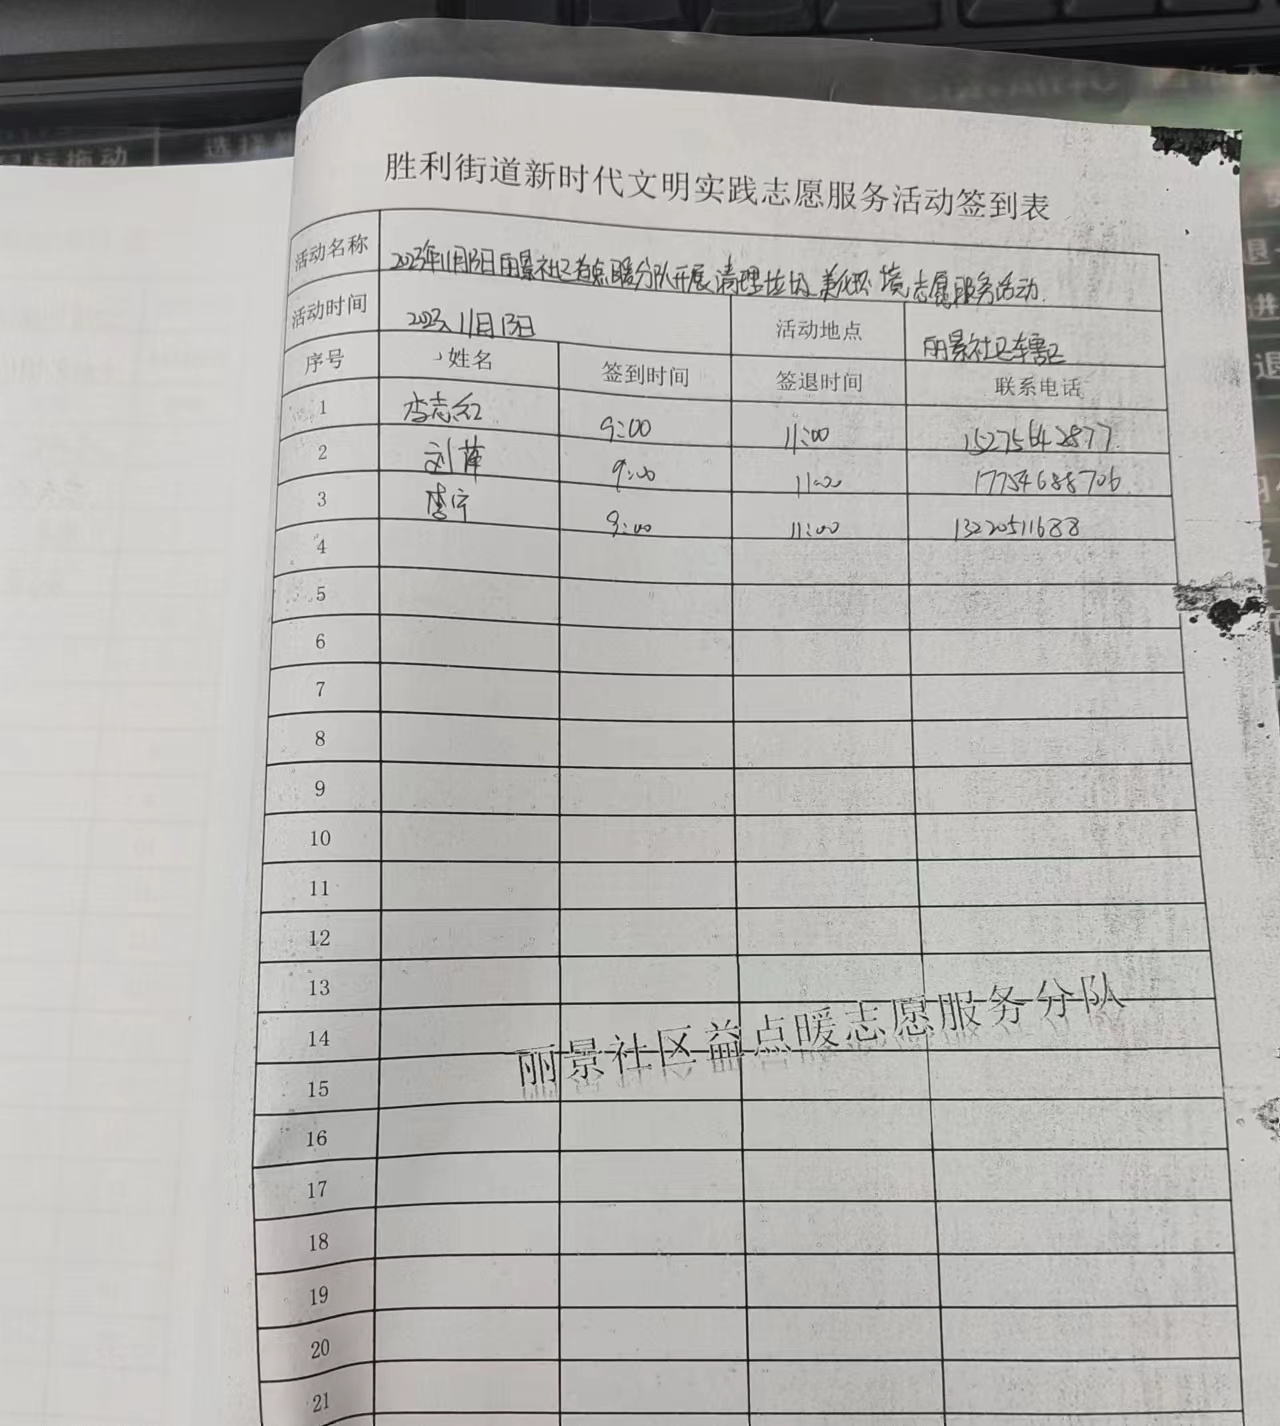 胜利街道新时代文明实践志愿服务活动签到表
活动名称 2023年11月13日丽景社区益点暖分队开展清理垃圾美化环境志愿服务活动.
活动时间 2023.11月13日 活动地点 丽景社区辖区
序号 姓名 签到时间 签退时间 联系电话
1 李志红 9:00 11:00 15275642877
2 刘萍 9:00 11:00 17754688706
3 李宁 9:00 11:00 13220511688
4
5
6
7
8
9
10
11
12
13
14
丽景社区益点暖志愿服务分队
15
16
17
18
19
20
21